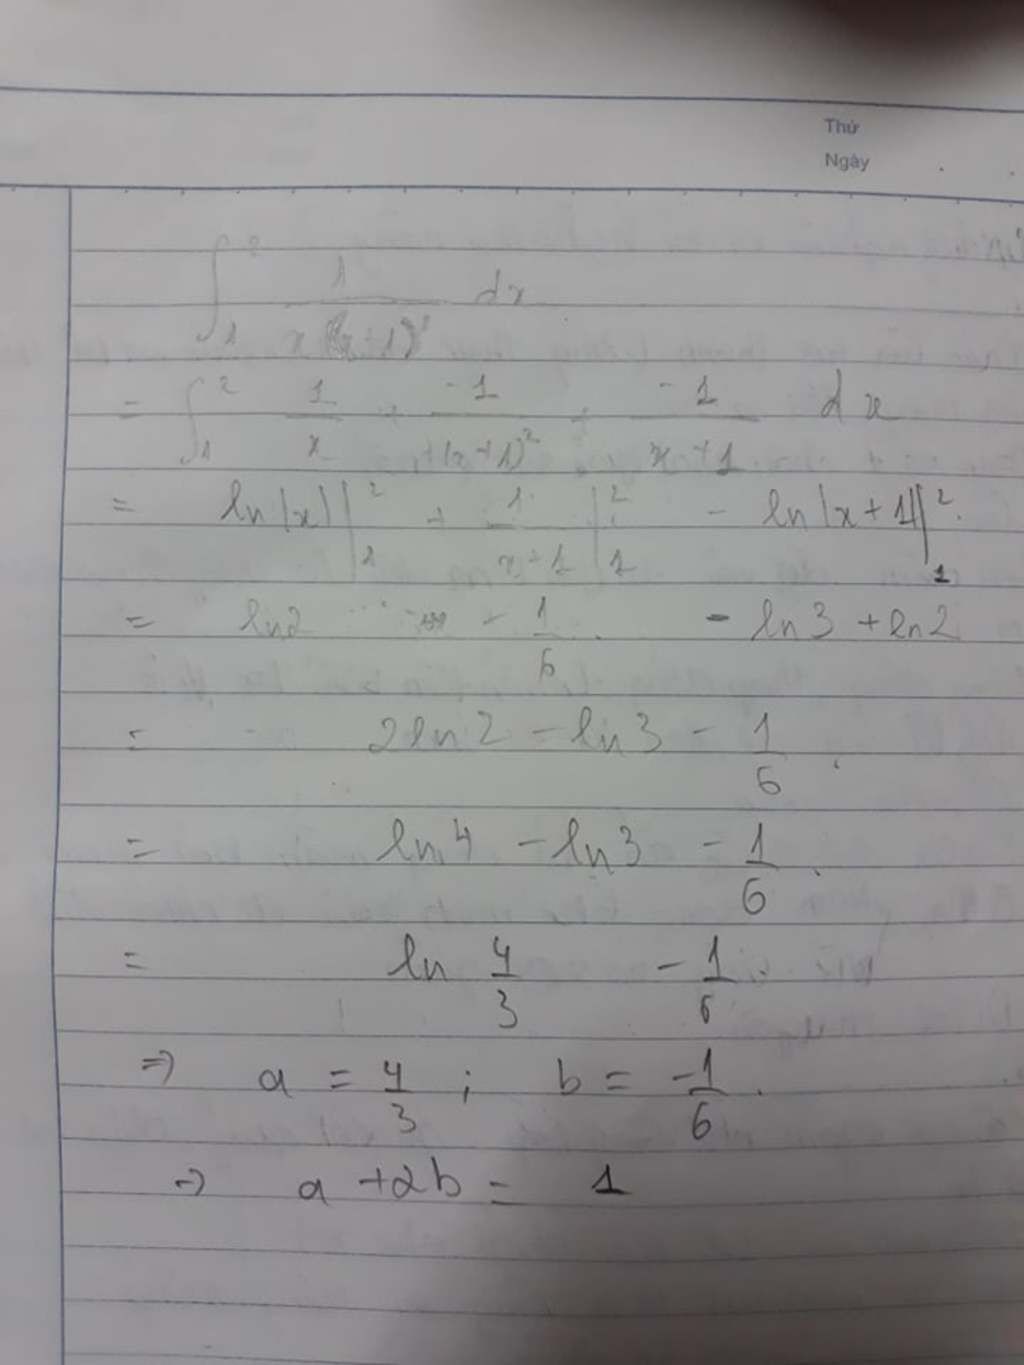 Thứ
Ngày
∫₁² 1/(x(x+1)²) dx
= ∫₁² 1/x + -1/(x+1)² + -1/(x+1) dx
= ln|x| |₁² + 1/(x+1) |₁² - ln|x+1| |₁²
= ln2 - 1/6 - ln3 + ln2
= 2ln2 - ln3 - 1/6
= ln4 - ln3 - 1/6
= ln 4/3 - 1/6
=> a = 4/3 ; b = -1/6
=> a + 2b = 1